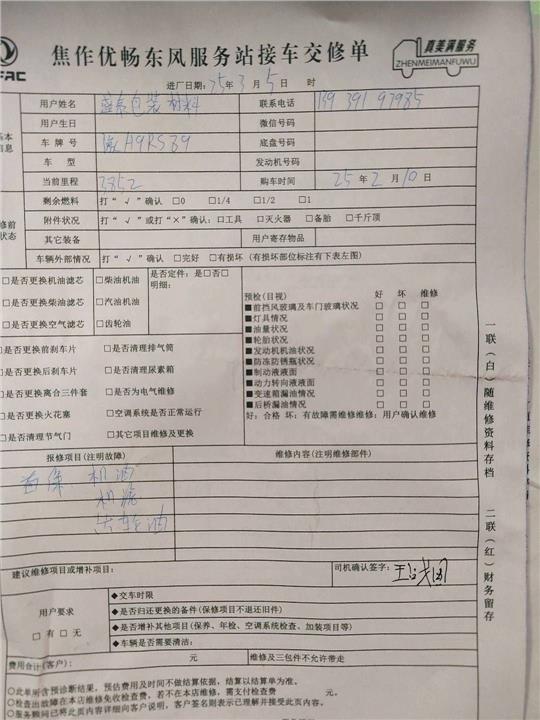 焦作优畅东风服务站接车交修单
真美满服务
ZHENMEIMANFUWU
FAC
进厂日期：25年3月5日 时
用户姓名 包装材料 联系电话 13939197985
用户生日 微信号码
车牌号 H9RS39 底盘号码
车 型 发动机号码
当前里程 3852 购车时间 25年2月10日
剩余燃料 打“√”确认 □0 □1/4 □1/2 □1
附件状况 打“√”或打“×”确认：□工具 □灭火器 □备胎 □千斤顶
其它装备 用户寄存物品
车辆外部情况 打“√”确认 □完好 □有损坏（有损坏部位标注有下表左图）
基本
信息
修前
状态
□是否更换机油滤芯 □柴油机油 是否定件：是□否□
□是否更换柴油滤芯 □汽油机油 明细：
□是否更换空气滤芯 □齿轮油
□是否更换前刹车片 □是否清理排气筒
□是否更换后刹车片 □是否清理尿素箱
□是否更换离合三件套 □是否为电气维修
□是否更换火花塞 □空调系统是否正常运行
□是否清理节气门 □其它项目维修及更换
预检（目视） 好 坏 维修
■前挡风玻璃及车门玻璃状况 □ □ □
■灯具情况 □ □ □
■油量状况 □ □ □
■轮胎状况 □ □ □
■发动机机油情况 □ □ □
■防冻防锈瓶状况 □ □ □
■制动液液面 □ □ □
■动力转向液液面 □ □ □
■变速箱漏油情况 □ □ □
■后桥漏油情况 □ □ □
好：合格 坏：有故障需维修维修：用户确认维修
报修项目（注明故障） 维修内容（注明维修部件）
首保 机油
机滤
齿轮油
建议维修项目或增补项目： 司机确认签字：
用户要求
□有□无
◆交车时限
◆是否归还更换的备件（保修项目不退还旧件）
◆是否增补其他项目（保养、年检、空调系统检查、加装项目等）
◆车辆是否需要清洁：
费用合计（客户）： 元 维修及三包件不允许带走
○此单所含预诊断结果，预估费用及时间不做结算依据，结算以结算单为准。
○检查出故障在本店维修免收检查费，若不在本店维修，需支付检查费 元。
○服务顾问已将此页内容详细向客户说明，客户签名则表示已理解并接受此页内容。
一联（白）随维修资料存档 二联（红）财务留存